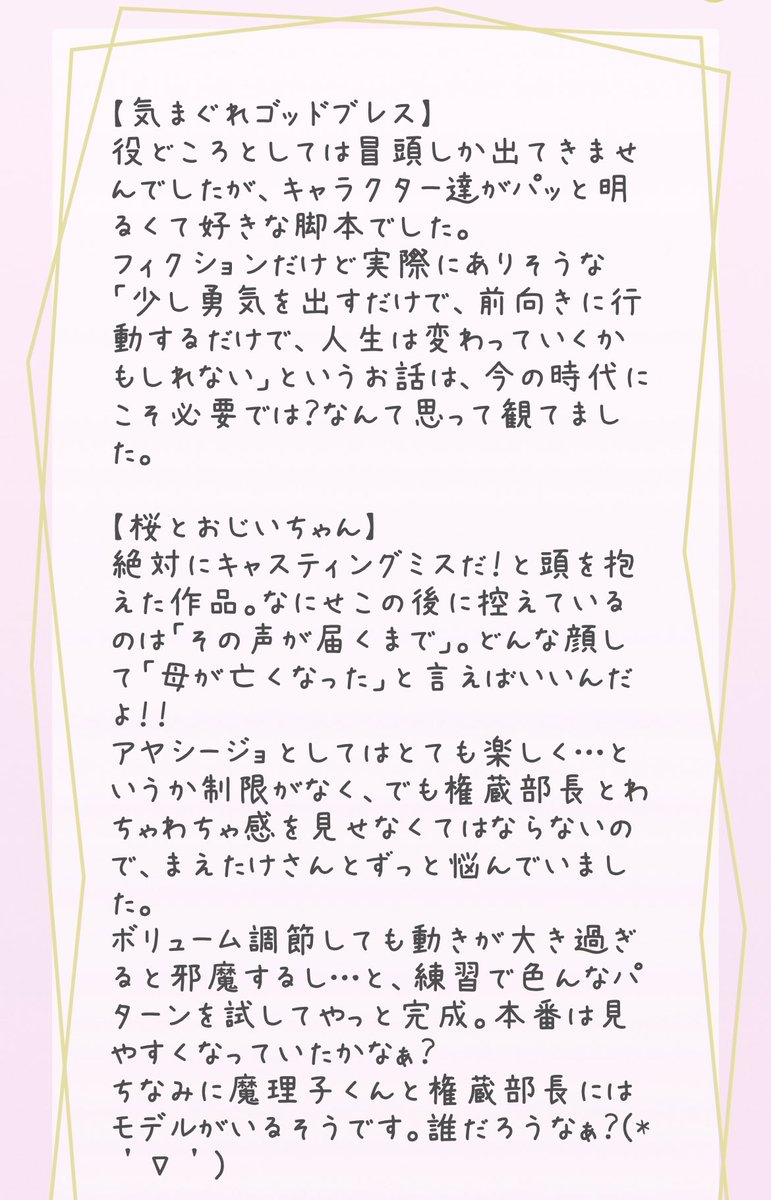 【気まぐれゴッドブレス】
役どころとしては冒頭しか出てきませ
んでしたが、キャラクター達がパッと明
るくて好きな脚本でした。
フィクションだけど実際にありそうな
「少し勇気を出すだけで、前向きに行
動するだけで、人生は変わっていくか
もしれない」というお話は、今の時代に
こそ必要では?なんて思って観てまし
た。
【桜とおじいちゃん】
絶対にキャスティングミスだ!と頭を抱
えた作品。なにせこの後に控えている
のは「その声が届くまで」。どんな顔し
て「母が亡くなった」と言えばいいんだ
よ!!
アヤシージョとしてはとても楽しく…と
いうか制限がなく、でも権蔵部長とわ
ちゃわちゃ感を見せなくてはならないの
で、まえたけさんとずっと悩んでいまし
た。
ボリューム調節しても動きが大き過ぎ
ると邪魔するし…と、練習で色んなパ
ターンを試してやっと完成。本番は見
やすくなっていたかなぁ?
ちなみに魔理子くんと権蔵部長には
モデルがいるそうです。誰だろうなぁ?(*
'▽')